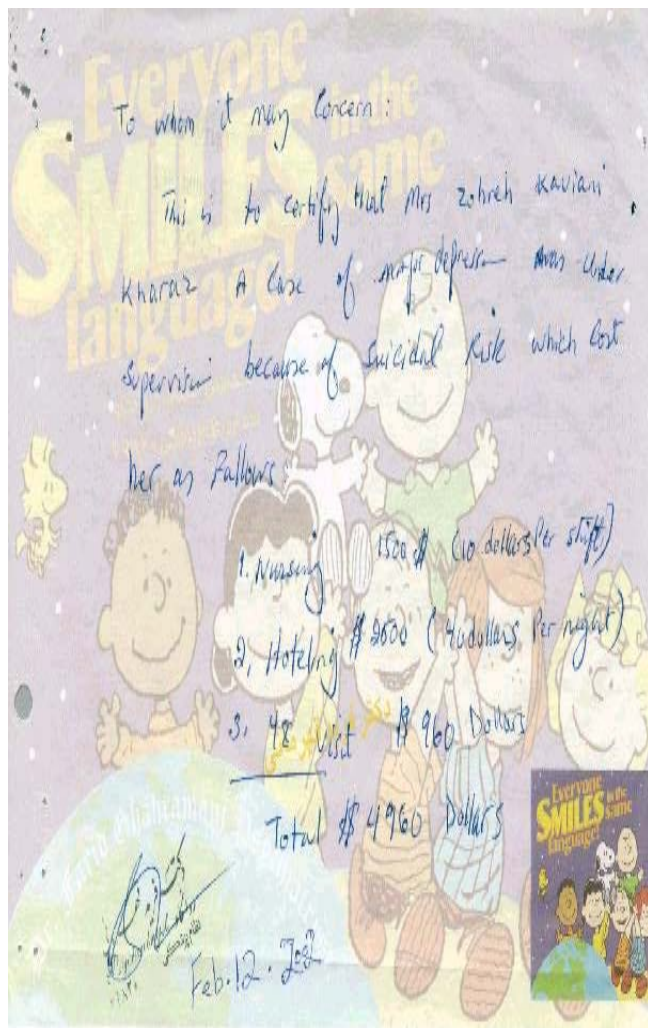 Everyone
SMILES in the
same
language!
To whom it may Concern:
This is to certify that Mrs Zohreh Kaviani
Kharaz A Case of major depression was Under
Supervision because of Suicidal Risk which Cost
her as Fallows:
1. Nursing 1500 $ (10 dollars Per shift)
2, Hoteling $ 2500 (40 dollars Per night)
3, 48 Visit $ 960 Dollars
Total $ 4960 Dollars
Feb.12.2002
Everyone
SMILES in the
same
language!